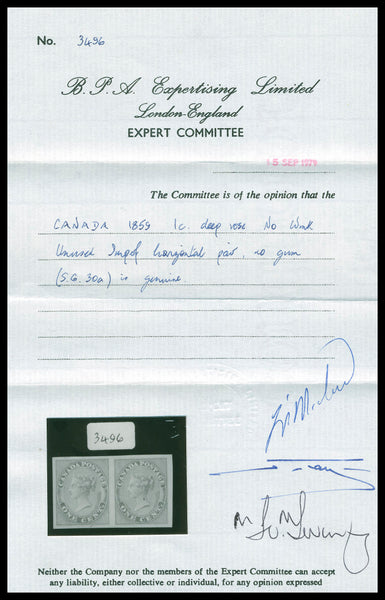 No. 3496
B.P.A. Expertising Limited
London-England
EXPERT COMMITTEE
15 SEP 1979
The Committee is of the opinion that the
CANADA 1859 1c. deep rose No Wmk
Unused Imperf horizontal pair, no gum
(S.G. 30a) is genuine.
3496
CANADA POSTAGE CANADA POSTAGE
ONE CENT ONE CENT
Neither the Company nor the members of the Expert Committee can accept
any liability, either collective or individual, for any opinion expressed